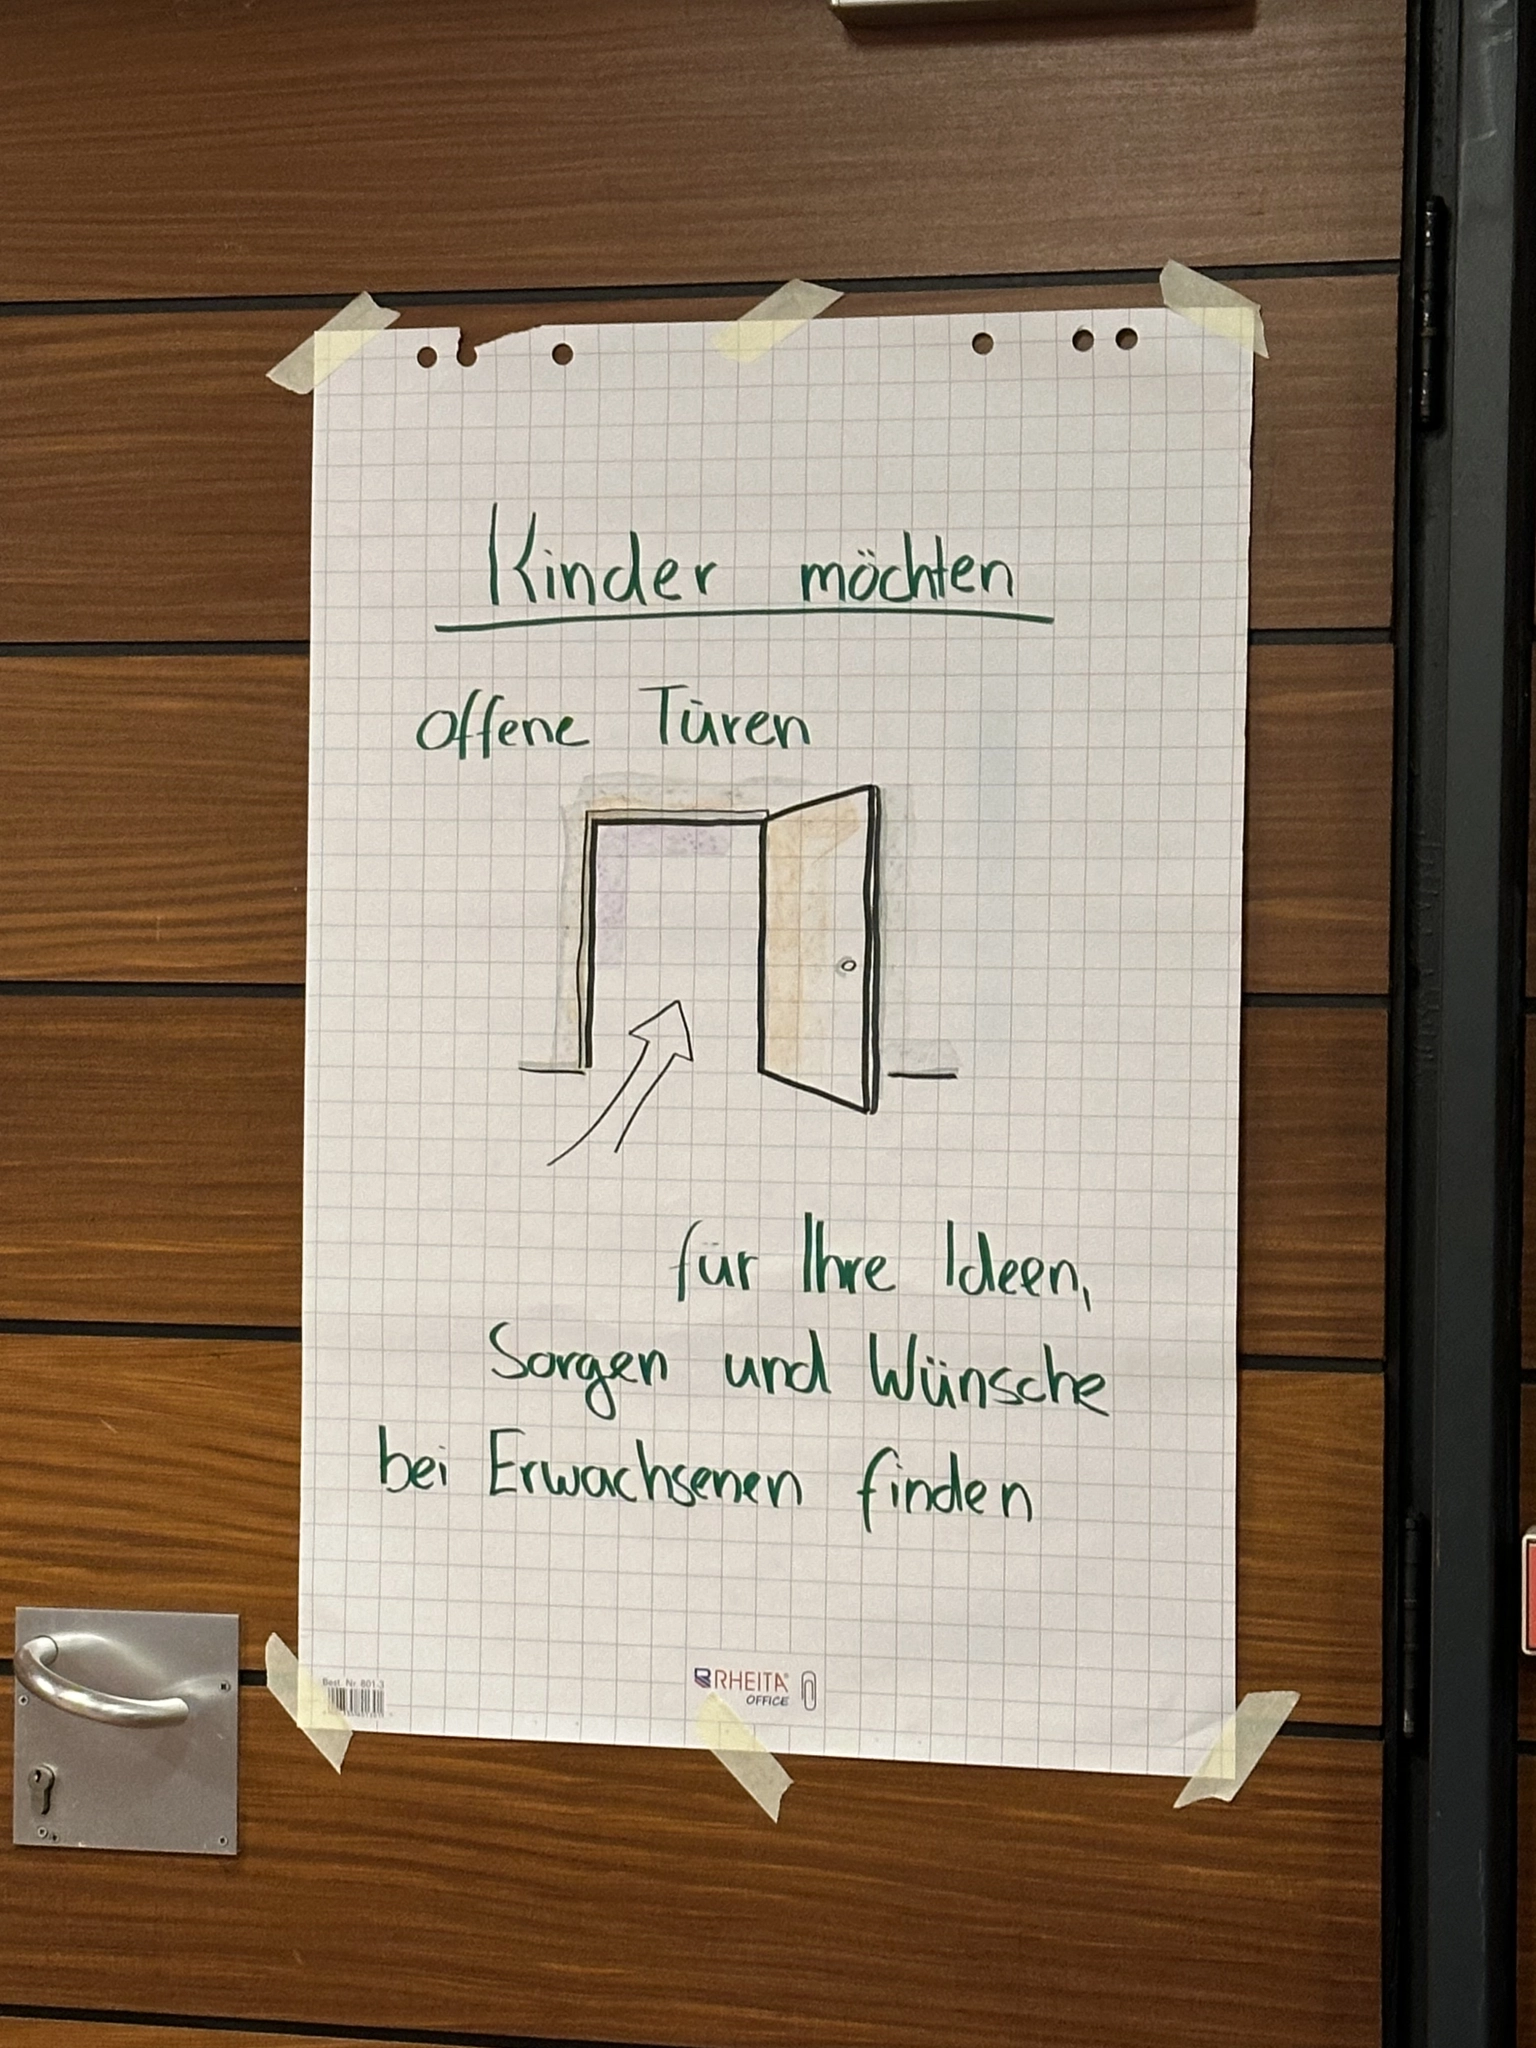 Kinder möchten
offene Türen
für Ihre Ideen,
Sorgen und Wünsche
bei Erwachsenen finden
Best. Nr. 801-3
RHEITA®
OFFICE